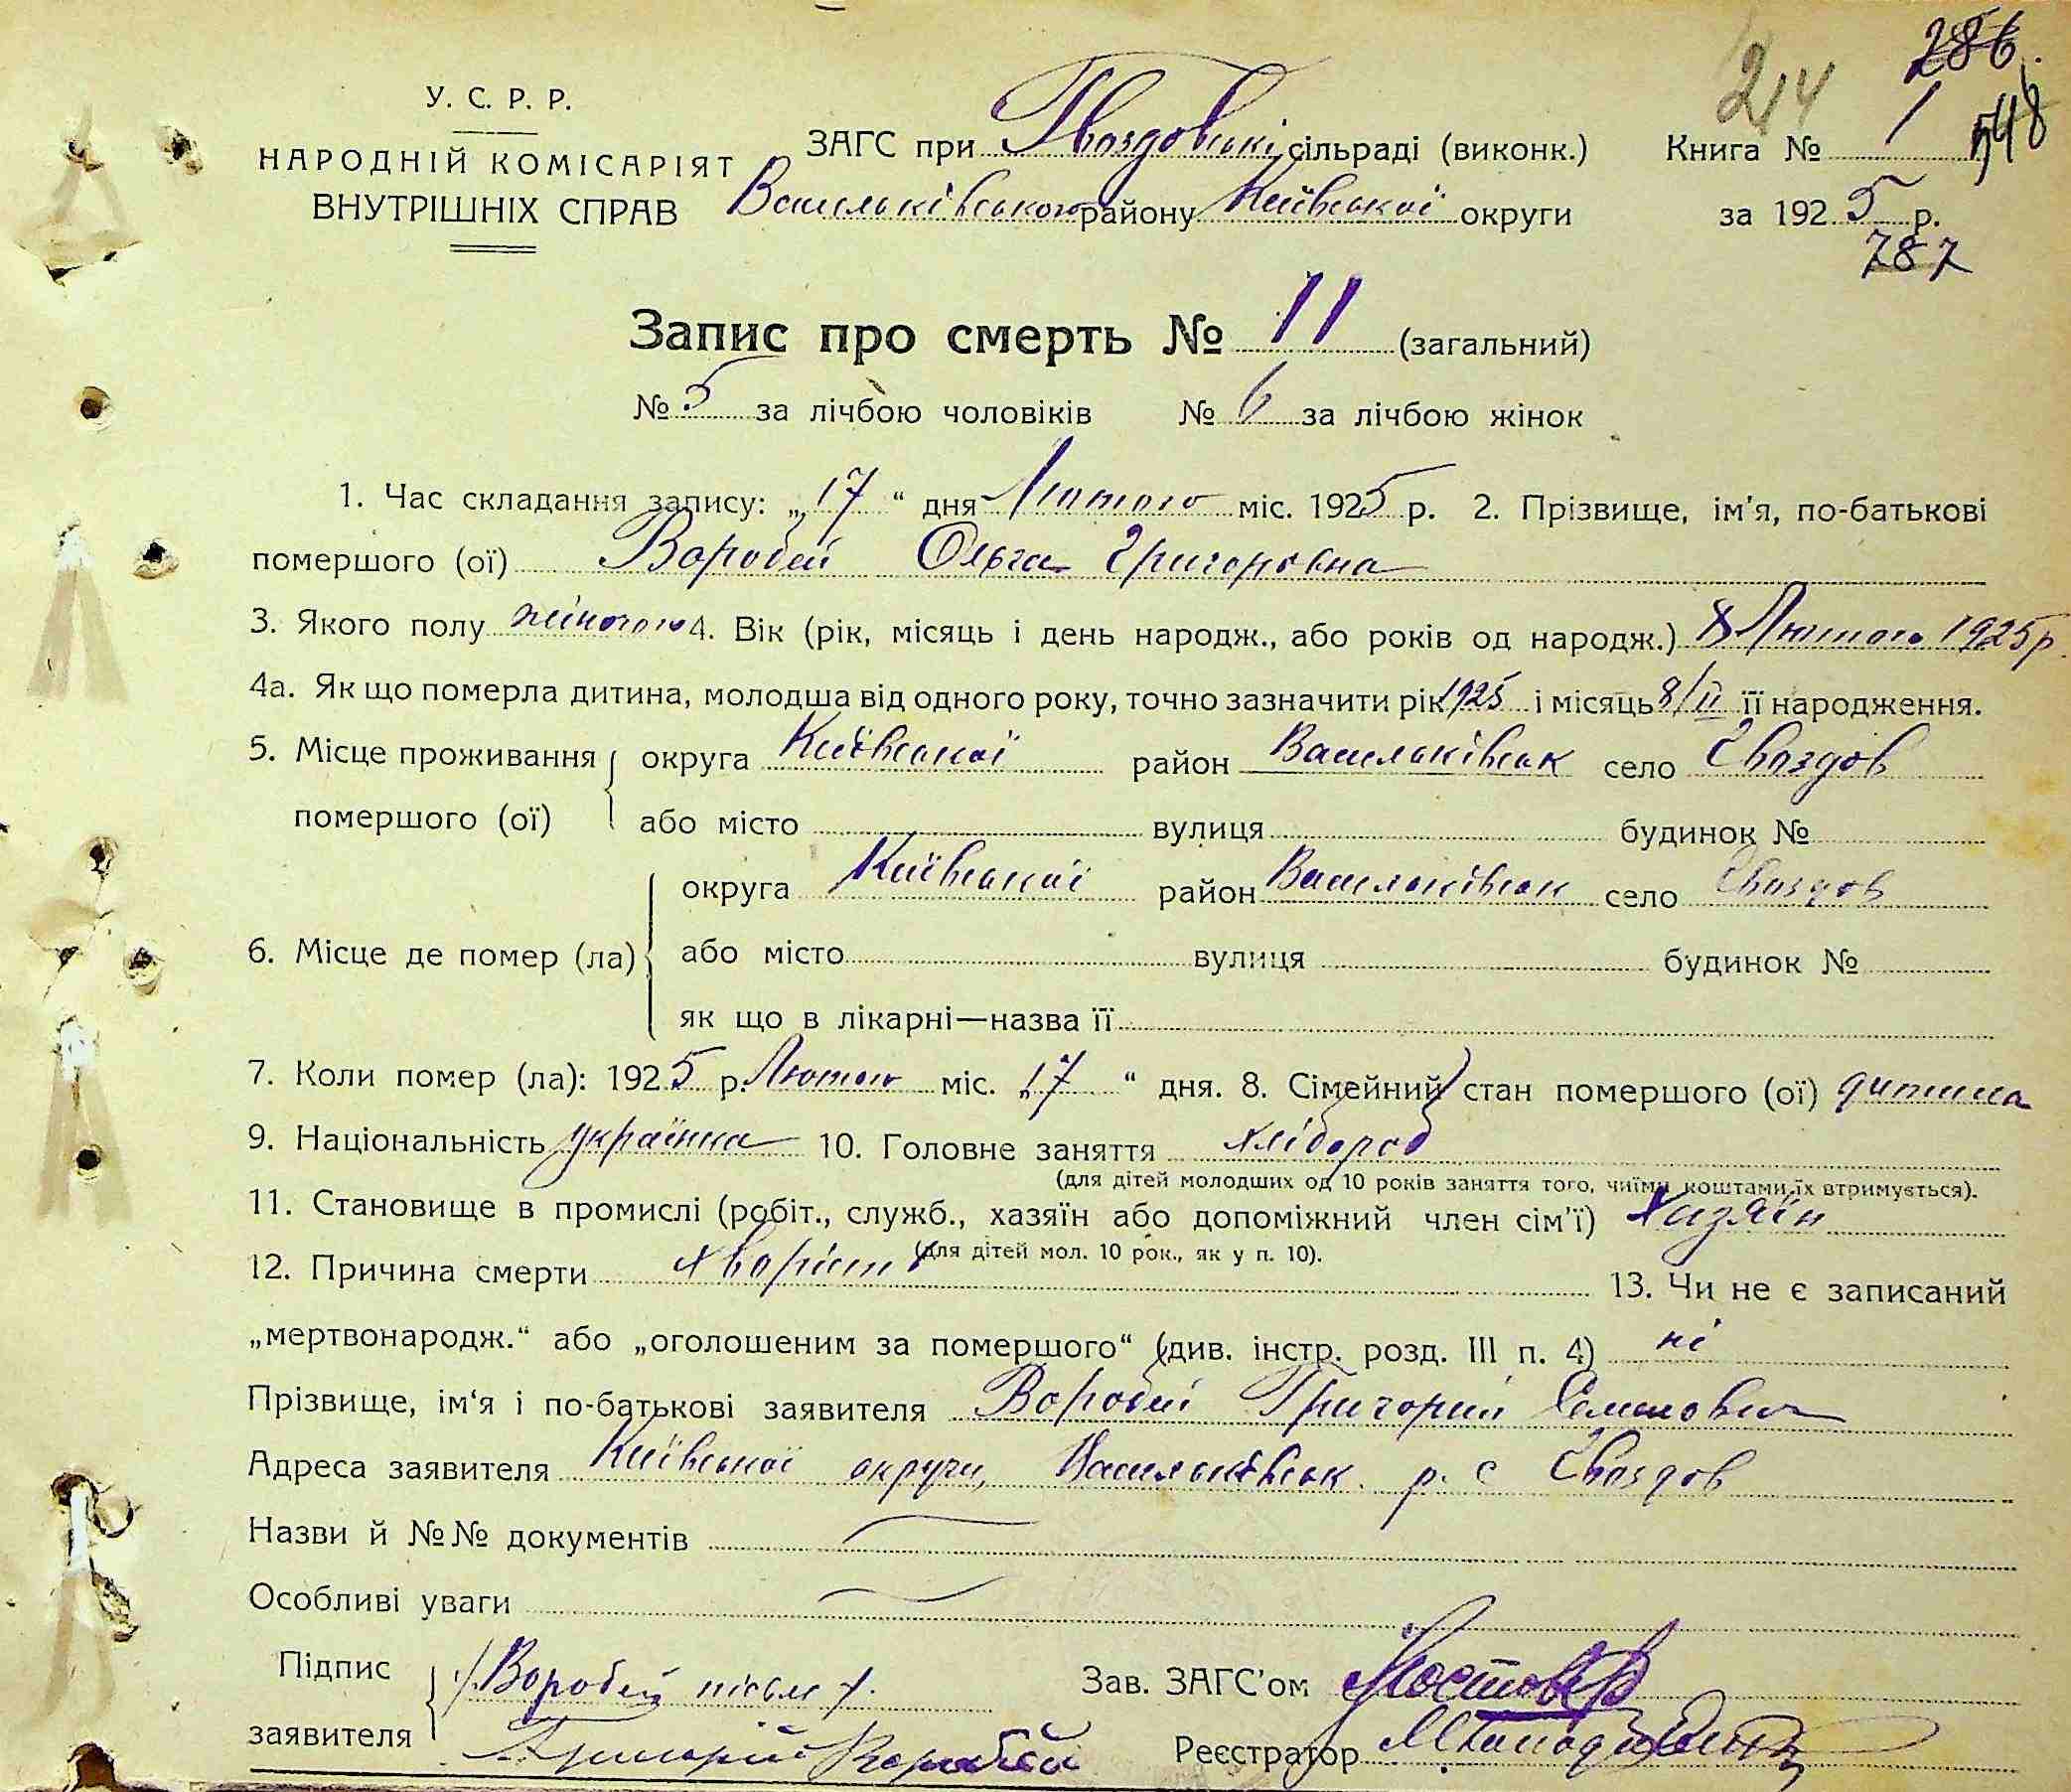 286.
214
548
У. С. Р. Р.
НАРОДНІЙ КОМІСАРІЯТ
ВНУТРІШНІХ СПРАВ
ЗАГС при Гвоздовські сільраді (виконк.) Книга № 1
Васильківського району Київської округи за 1925 р.
787
Запис про смерть № 11 (загальний)
№ 5 за лічбою чоловіків № 6 за лічбою жінок
1. Час складання запису: „17“ дня Лютого міс. 1925 р. 2. Прізвище, ім'я, по-батькові
помершого (ої) Воробей Ольга Григоровна
3. Якого полу жіночого 4. Вік (рік, місяць і день народж., або років од народж.) 8 Лютого 1925 р
4а. Як що померла дитина, молодша від одного року, точно зазначити рік 1925 і місяць 8/II її народження.
5. Місце проживання округа Київської район Васильківськ село Гвоздов
помершого (ої) або місто вулиця будинок №
округа Київської район Васильківськ село Гвоздов
6. Місце де помер (ла) або місто вулиця будинок №
як що в лікарні—назва її
7. Коли помер (ла): 1925 р. Лютого міс. „17“ дня. 8. Сімейний стан помершого (ої) дитина
9. Національність українка 10. Головне заняття хлібороб
(для дітей молодших од 10 років заняття того, чиїми коштами їх втримується).
11. Становище в промислі (робіт., служб., хазяїн або допоміжний член сім'ї) Хазяїн
(для дітей мол. 10 рок., як у п. 10).
12. Причина смерти 13. Чи не є записаний
„мертвонародж.“ або „оголошеним за помершого“ (див. інстр. розд. III п. 4) ні
Прізвище, ім'я і по-батькові заявителя Воробей Григорий Семенович
Адреса заявителя Київської округи, Васильківськ р. с Гвоздов
Назви й №№ документів
Особливі уваги
Підпис Воробей Зав. ЗАГС'ом
заявителя Григорій Воробей Реєстратор